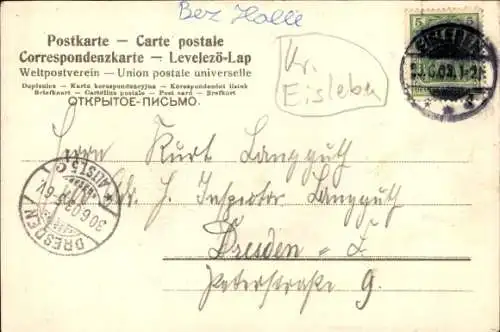 Bez Halle
Postkarte – Carte postale
Correspondenzkarte – Levelező-Lap
Weltpostverein – Union postale universelle
Dopisnice – Karta korespondencyjna – Korespondenční lístek
Briefkaart – Cartolina postale – Post card – Brefkort
ОТКРЫТОЕ-ПИСЬМО.
Kr.
Eisleben
5 5
1-2N.
Herrn Kurt Langguth
Adr. H. Inspector Langguth
Dresden – A.
Peterstraße 9.
DRESDEN
ALTST. 5
30.6.03. 6-